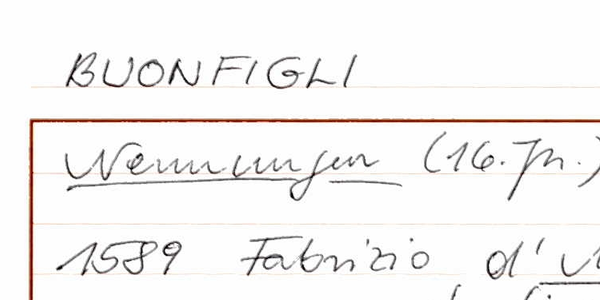 BUONFIGLI
Nennungen (16. Jh.)
1589 Fabrizio d'